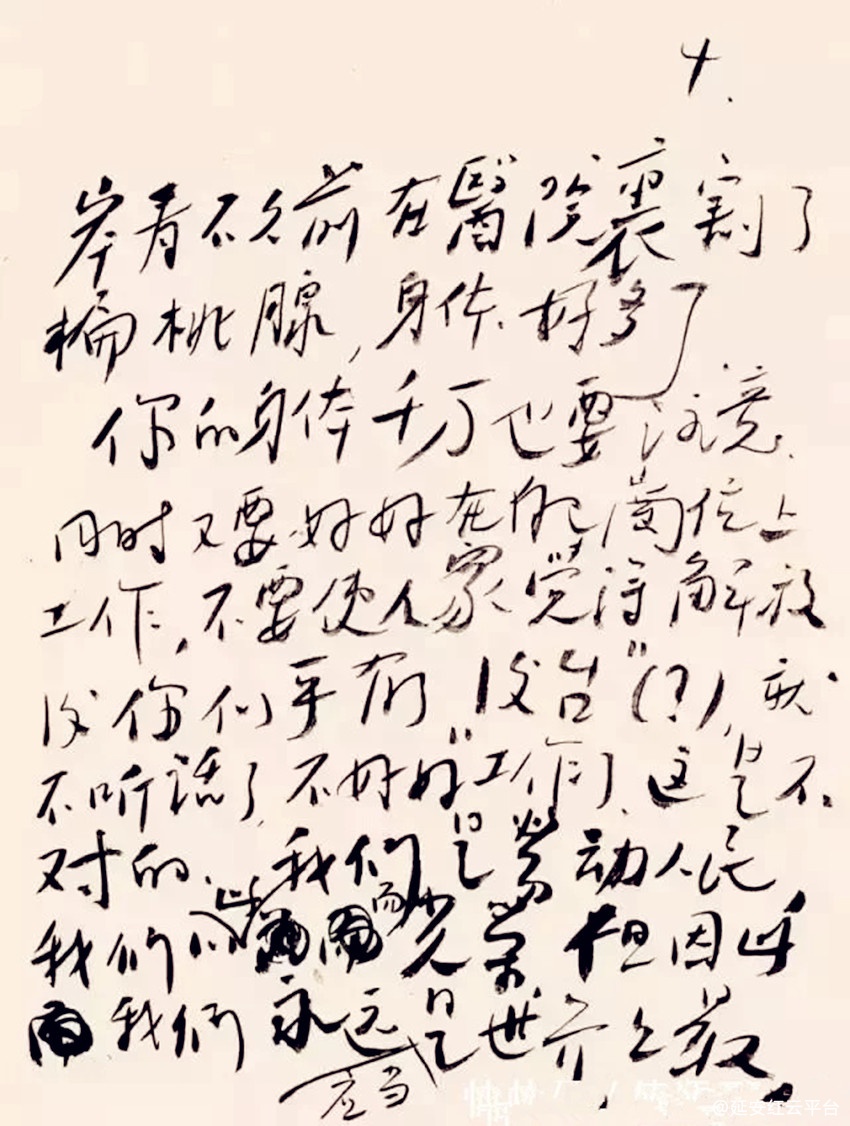 4.
岸青不久前在醫院裏割了
扁桃腺,身体好多了
你的身体千万也要注意.
同时又要好好在自己崗位上
工作,不要使人家覚得解放
后你们乎有了"后台"(?),就
不听话了,不好好工作了.这是不
对的.我们是劳动人民
我们 此而光荣 但因此
我们永远是世界上最
应当
@延安红云平台